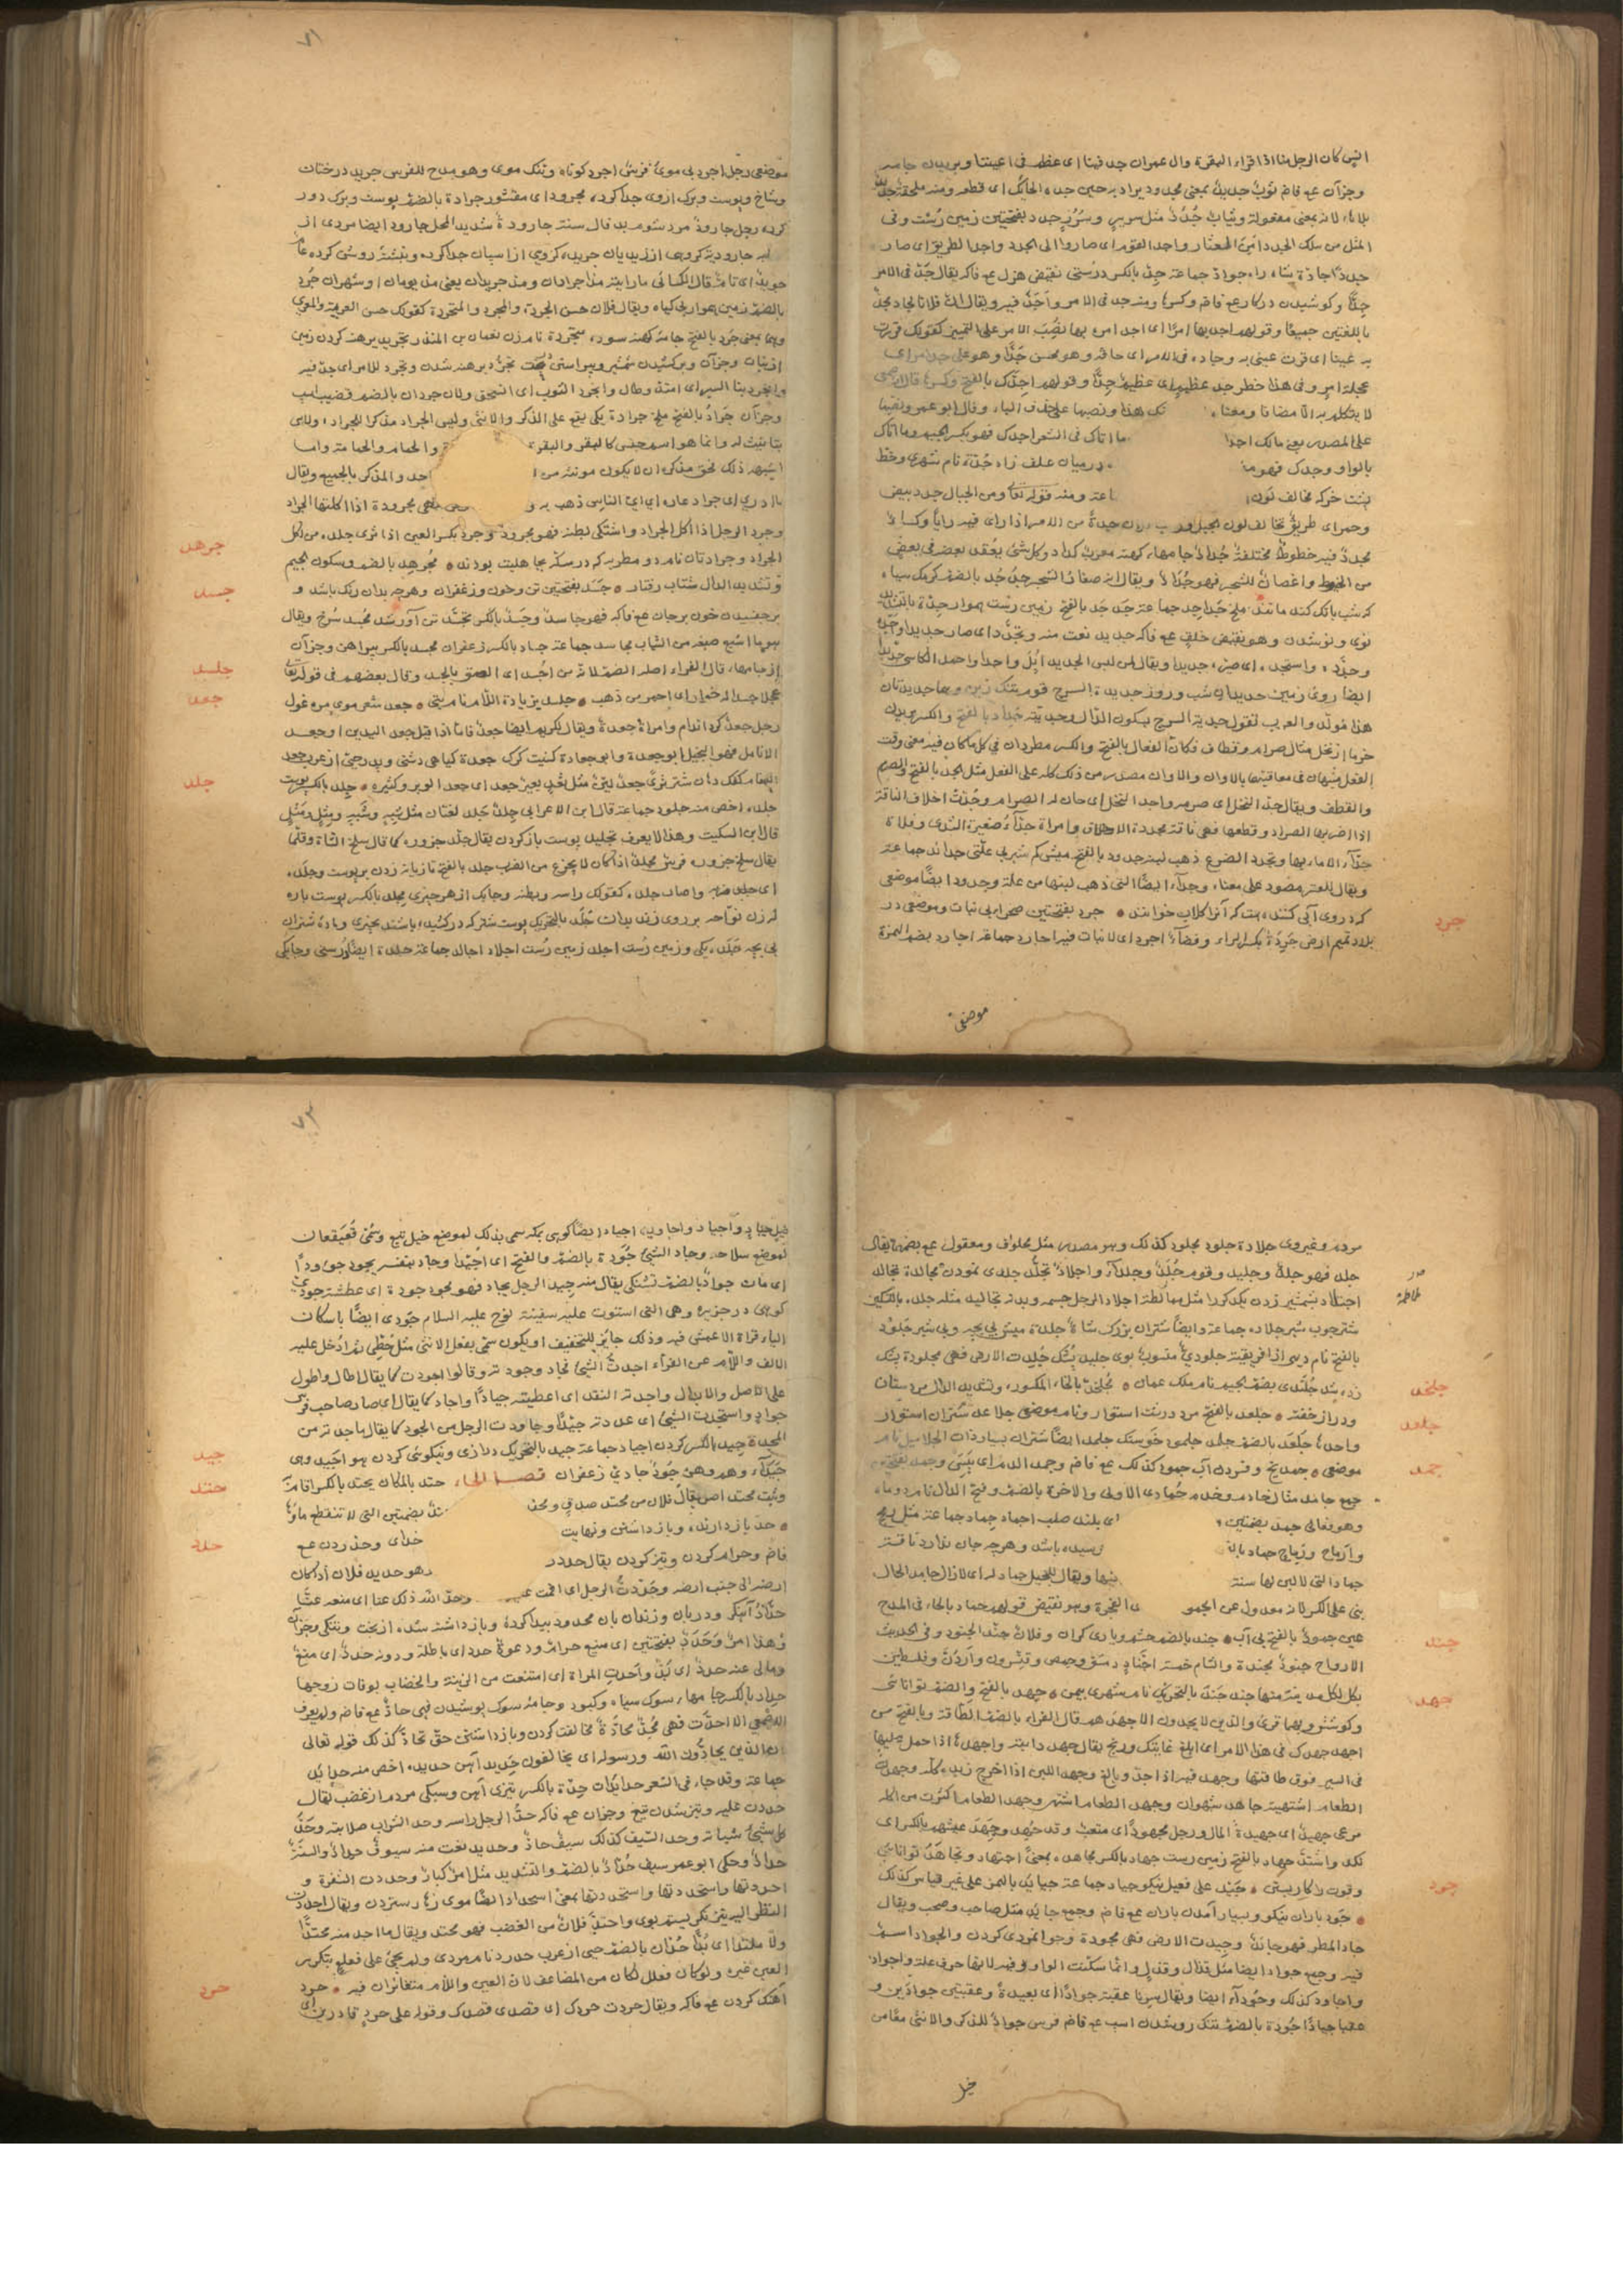 انس كان الرجل منا اذا قراء البقرة وال عمران جد فينا اى عظم فى اعيننا وبريدن جامه
وجز آن ع فاض ثوب جديد بمعنى مجدود يراد به حين جده الحائك اى قطعه ومنه ملحفة جديد
بلا هاء لانه بمعنى مفعولة وثياب جدد مثل سرير وسرر جدد بفتحتين زمين درشت وفى
المثل من سلك الجدد امن العثار واجد القوم اى صاروا الى الجدد واجد الطريق اى صار
جددا جادة شاه راه جواد جماعة جد بالكسر درستى نقيض هزل ع فاكه يقال جد فى الامر
جدا وكوشيدن در كار ع فاض وكسرها ومنه جد فى الامر واجد فيه ويقال ان فلانا لجاد مجد
باللغتين جميعا وقولهم اجد بها امرا اى اجد امره بها نصب الامر على التمييز كقولك قررت
به عينا اى قرت عينى به وجاده فى الامر اى حاقه وهو محسن جدا وهو على جد امر اى
عجلة امر وفى هذا خطر جد عظيم اى عظيم جدا وقولهم اجدك بالفتح وكسرها قال الاصمعى
لا يتكلم به الا مضافا ومعناه
هذا ونصبها على حذف الباء وقال ابو عمرو نصبها
على المصدر يعنى مالك اجدا
ما اتاك فى الشعر اجدك فهو بكسر الجيم وما اتاك
بالواو وجدك فهو
درميان علف زاه جدة نام شهرى وخط
پشت خر كه مخالف لون
ومنه قوله تعالى ومن الجبال جدد بيض
وحمر اى طريق تخالف لون الجبل
جدة من الامر اذا راى فيه رايا وكساء
مجدد فيه خطوط مختلفة جداد جامهاء كهنه معرب كداد وكل شئ يعقد بعضه فى بعض
من الخيط واغصان الشجر فهو جداد ويقال انه صغار الشجر جدجد بالضم كرمك سياه
كه شب بانك كند مانند ملخ جداجد جماعة جدجد بالفتح زمين درشت هموار جدة بالتشديد
نوى ونو شدن وهو نقيض خلق ع فاكه جديد نعت منه وتجدد اى صار جديدا واجده
وجدده واستجده اى صيره جديدا ويقال لمن لبس الجديد ابل واجد واحمد الكاسى جديد
ايضا روى زمين جديدان شب وروز جديدة السرج قوم تنك زين وهما جديدتان
هذا مولد والعرب تقول جدية السرج بسكون الدال وجدية جداد بالفتح والكسر بريدن
خرما از نخل مثال صرام وقطاف فكان الفعال بالفتح والكسر مطردان فى كل ما كان فيه معنى وقت
الفعل مشبهان فى معاقبتهما بالاوان والاوان مصدر من ذلك كله على الفعل مثل الجد بالفتح والصرم
والقطف ويقال جذ النخل اى صرمه واجد النخل اى حان له الصرام وجدت اخلاف الناقة
اذا اضر بها الصرار وقطعها فهى ناقة مجددة الاخلاف وامراة جداء صغيرة الثدى وفلاة
جداء لا ماء بها وتجدد الضرع ذهب لبنه جدود بالفتح ميش كم شير بى علتى جدائد جماعة
ويقال للعنز مصور على معناه وجداء ايضا التى ذهب لبنها من علة وجدود ايضا موضعى
كه در روى آبى كنند هست كه آنرا كلاب خوانند جرد بفتحتين صحرا بى نبات وموضعى در
بلاد تميم ارض جردة بكسر الراء وفضاء اجرد اى لا نبات فيه اجارد جماعة اجارد بضم الهمزة
جرد
موضعى
٧١
موضعى رجل اجرد بى موى فرس اجرد كوتاه وتنك موى وهو مدح للفرس جريد درختان
وشاخ وپوست وبرك ازوى جدا كرده مجرود اى مقشور جرادة بالضم پوست وبرك دور
كرده رجل جارود مرد شوم بد فال سنة جارودة شديد المحل جارود ايضا مردى از
جاروديه كروهى از زيديان جريده كروهى از اسپان جدا كرده وبشتر روشن كرده عام
جريد اى تام قال الكسائى ما رايته مذ اجردان ومذ جريدان يعنى مذ يومان او شهران جرد
بالضم زمين هموار بى كياه ويقال فلان حسن الجردة والمجرد والمتجرد كقولك حسن العرية والمعرى
وهما بمعنى جرد بالفتح جامه كهنه سوده متجردة نام زن نعمان بن المنذر تجريد برهنه كردن زمين
از نبات وجز آن وبر كشيدن شمشير وپيراستن درخت تجرد برهنه شدن وتجرد للامر اى جد فيه
وانجرد بنا السير اى امتد وطال وانجرد الثوب اى انسحق ولان جردان بالضم قضيب اسب
وجز آن جراد بالفتح ملخ جرادة يكى يقع على الذكر والانثى وليس الجراد مذكرا للجرادة وليس
بتانيث له وانما هو اسم جنس كالبقر والبقرة
والحمام والحمامة وما
اشبه ذلك فحق مذكره ان لا يكون مونثه من
احد والمذكر بالجميع ويقال
ما ادرى اى جراد عاره اى اى الناس ذهب به
مجرودة اذا اكلتها الجراد
وجرد الرجل اذا اكل الجراد واشتكى بطنه فهو مجرود وجرد بكسر العين اذا شرى جلده من اكل
الجراد وجرادتان نام دو مطربه كه در مكه بجاهليت بودند مجرهد بالضم وسكون الجيم
وتشديد الدال شتاب رفتار جسد بفتحتين تن وخون وزعفران وهرچه بدان رنك باشد و
برچفسيدن خون برجان ع فاكه فهو جاسد وجسد بالكسر تجسد تن آور شد مجسد سرخ ويقال
هو ما اشبع صبغه من الثياب مجاسد جماعة جساد بالكسر زعفران مجسد بالكسر پيراهن وجز آن
از جامها قال الفراء اصله الضم لانه من اجسد اى الصق بالجسد وقال بعضهم فى قوله تعالى
عجلا جسدا له خوار اى احمر من ذهب جلسد بزيادة اللام نام بتى جعد شعر موى مرغول
رجل جعد كرد اندام وامراة جعدة ويقال لكريم ايضا جعد فاما اذا قيل جعد اليدين او جعد
الانامل فهو البخيل ابو جعدة وابو جعادة كنيت كرك جعدة كياهى دشتى وپدر حيى از عرب جعد
اللغام كفك دهان شتر ثرى جعد ثئد مثل بعير جعد اى جعد الوبر وكثيره جلد بالكسر پوست
جلده اخص منه جلود جماعة قال ابن الاعرابى جلد جلد لغتان مثل شبه وشبه ومثل ومثل
قال ابن السكيت وهذا لا يعرف تجليد پوست باز كردن يقال جلد جزوره كما قال سلخ الشاة وقلما
يقال سلخ جزوره فرس مجلد اذا كان لا يجزع من الضرب جلد بالفتح تازيانه زدن بر پوست وجلده
اى جلد ضربه واصاب جلده كقولك راسه وبطنه وچابك از هر چيزى مجلد بالكسر پوست پاره
كه زن نواحه بر روى زند بدان جلد بالتحريك پوست شتر كه در كشيده باشند بچيزى وماده شتران
بى بچه جلده يكى وزمين درشت اجلد زمين درشت اجلاد اجالد جماعة جلدة ايضا درستى وچابكى
جرهد
جسد
جلسد
جعد
جلد
مرده وغيره وى جلادة جلود مجلود كذلك وهو مصدر مثل محلوف ومعقول ع بضمهن يقال
جلد فهو جلد وجليد وقوم جلد وجلداء واجلاد تجلد جلدى نمودن مجالدة تجالد
اجتلاد بشمشير زدن يكديكر را مثل مبالطة اجلاد الرجل جسمه وبدنه تجاليد مثله جلد بالتسكين
شتر چوب شير جلاد جماعة وايضا شتران بزرك شاة جلدة ميش بى بچه وبى شير جلود
بالفتح نام ديهى از افريقية جلودى منسوب بوى جليد پشك جلدت الارض فهى مجلودة پشك
زده شد جلندى بضم الجيم نام ملك عمان مجلخد بالخاء المكسور وتشديد الدال مرد ستان
ودراز خفته جلعد بالفتح مرد درشت استوار ونام موضعى جلاعد شتران استوار
واحده جلعد بالضم جلمد جلمود خرسنك جلمد ايضا شتران بسيار ذات الجلاميد نام
موضعى جمد يخ وفسردن آب جمود كذلك ع فاض وجمد الدم اى يبس وجمد بفتحتين
جمع جامد مثال خادم وخدم جمادى الاولى والاخرة بالضم وفتح الدال نام دو ماه
وهو فعالى جمد بضمتين
اى بلند صلب اجماد جماد جماعة مثل رمح
وارماح ورماح جماد بالفتح
رسيده باشد وهرچه جان ندارد ناقة
جماد التى لا لبن لها سنة
فيها ويقال للبخيل جماد له اى لا زال جامد الحال
بنى على الكسر لانه معدول عن الجمود
اى الفجرة وهو نقيض قولهم حماد بالحاء فى المدح
عين جمود بالفتح بى آب جند بالضم حشم ويارى كران وفلان جند الجنود وفى الحديث
الارواح جنود مجندة والشام خمسة اجناد دمشق وحمص وقنسرين واردن وفلسطين
يقال لكل مدينة منها جند جند بالتحريك نام شهرى بيمن جهد بالفتح والضم توانائى
وكوشش وبهما قرئ والذين لا يجدون الا جهدهم قال الفراء بالضم الطاقة وبالفتح من
اجهد جهدك فى هذا الامر اى ابلغ غايتك ورنج يقال جهد دابته واجهدها اذا حمل عليها
فى السير فوق طاقتها وجهد فيه اذا اجد وبالغ وجهد اللبن اذا اخرج زبده كله وجهدت
الطعام اشتهيته جاهد شهوان وجهد الطعام اشتهى وجهد الطعام اكثرت من اكله
مرعى جهيد اى جهيدة المال ورجل مجهود اى متعب وقد جهد وجهد عيشهم بالكسر اى
نكد واشتد جهاد بالفتح زمين درشت جهاد بالكسر مجاهدة بمعنى اجتهاد وتجاهد توانائى
وقوت بكار بستن جيد على فعيل نيكو جياد جماعة جيايد بالهمز على غير قياس كذلك
جود باران نيكو وبسيار آمدن باران ع فاض وجمع جائد مثل صاحب وصحب ويقال
جاد المطر فهو جائد وجيدت الارض فهى مجودة وجوانمردى كردن والجواد اسم
فيه وجمع جواد ايضا مثل قذال وقذل وانما سكنت الواو فيه لانها حرف علة واجواد
واجاود كذلك وجوداء ايضا ويقال سرنا عقبة جوادا اى بعيدة وعقبتين جوادين و
عقبا جيادا جودة بالضم تنك رو شدن اسب ع فاض فرس جواد للذكر والانثى معا من
جلخد
جلعد
جمد
جند
جهد
جود
خيل
٧٣
خيل جياد واجياد واجاويد اجياد ايضا كوهى بمكه سمى بذلك لموضع خيل تبع وسمى قعيقعان
لموضع سلاحه وجاد الشئ جودة بالضم والفتح اى جيدا وجاد بنفسه يجود جوودا
اى مات جواد بالضم تشنكى يقال منه جيد الرجل يجاد فهو مجود جودة اى عطشة جودى
كوهى در جزيره وهى التى استوت عليه سفينة نوح عليه السلام جودى ايضا باسكان
الياء قراة الاعمش فيه وذلك جايز للتخفيف او يكون سمى بفعل الانثى مثل حطى ثم ادخل عليه
الالف واللام عن الفراء اجدت الشئ فجاد وجودته وقالوا اجودت كما يقال اطال واطول
على الاصل والابدال واجدته النقد اى اعطيته جيادا واجاد كما يقال اى صار صاحب فرس
جواد واستجدت الشئ اى عددته جيدا وجاودت الرجل من الجود كما يقال ماجدته من
المجد جيد بالكسر كردن اجياد جماعة جيد بالتحريك درازى ونيكوئى كردن هو اجيد وهى
جيداء وهم وهن جود جادى زعفران فصل الحاء حتد بالمكان يحتد بالكسر اقام به
وثبت محتد اصل يقال فلان من محتد صدق ومحفد
بضمتين التى لا تنقطع ماؤها
حد باز دارنده وباز داشتن ونهايت
خداى وحد زدن ع
فاض وحرام كردن وتيز كردن يقال حدد
وهو حديد فلان اذا كان
ارضه الى جنب ارضه وحددت الرجل اى اقمت
وحد الله ذلك عنا اى منعه عنا
حداد آهنكر ودربان وزندان بان محدود پيدا كرده وباز داشته شده از بخت ونيكى وجز آن
وهذا امر حدد بفتحتين اى منيع حرام ودعوة حدد اى باطلة ودونه حدد اى منع
ومالى عنه حدد اى بد واحدت المراة اى امتنعت من الزينة والخضاب بوفات زوجها
حداد بالكسر جامهاء سوك سياه وكبود وجامه سوك پوشيدن فهى حاد ع فاض ولم يعرف
الاصمعى الا احدت فهى محد محادة مخالفت كردن وباز داشتن حق تحاد كذلك قوله تعالى
ان الذين يحادون الله ورسوله اى يخالفون حديد آهن حديده اخص منه حدايد
جماعة وقد جاء فى الشعر حدايدات حدة بالكسر تيزى آهن وسبكى مردم از غضب يقال
حددت عليه وتيز شدن تيغ وجز آن ع فاكه حد الرجل راسه وحد الشراب صلابته وحد
كل شئ شباته وحد السيف كذلك سيف حاد وحديد نعت منه سيوف حداد والسنة
حداد وحكى ابو عمر سيف حداد بالضم والتشديد مثل امر كبار وحددت الشفرة و
احددتها واستحددتها بمعنى استحداد ايضا موى زهار ستردن ويقال احددت
النظر اليه تيز نكريستم بوى واحتد فلان من الغضب فهو محتد ويقال ما اجد منه محتدا
ولا ملتدا اى بدا حدان بالضم حيى از عرب حدرد نام مردى ولم يجئ على فعلع بتكرير
العين غيره ولو كان فعلل لكان من المضاعف لان العين واللام متغائران فيه حرد
آهنك كردن ع فاكه ويقال حردت حردك اى قصدى قصدك وقوله على حرد قادرين اى
جيد
حتد
حدد
حرد